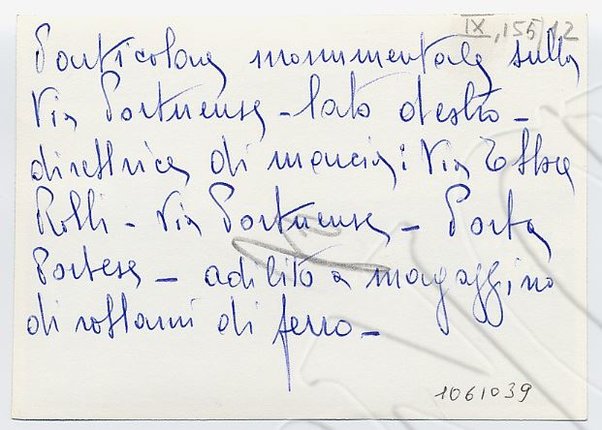 IX, 155, 12
Particolare monumentale sulla
Via Portuense - lato destro -
direttrice di marcia: Via Ettore
Rolli - Via Portuense - Porta
Portese - adibito a magazzino
di rottami di ferro -
1061039